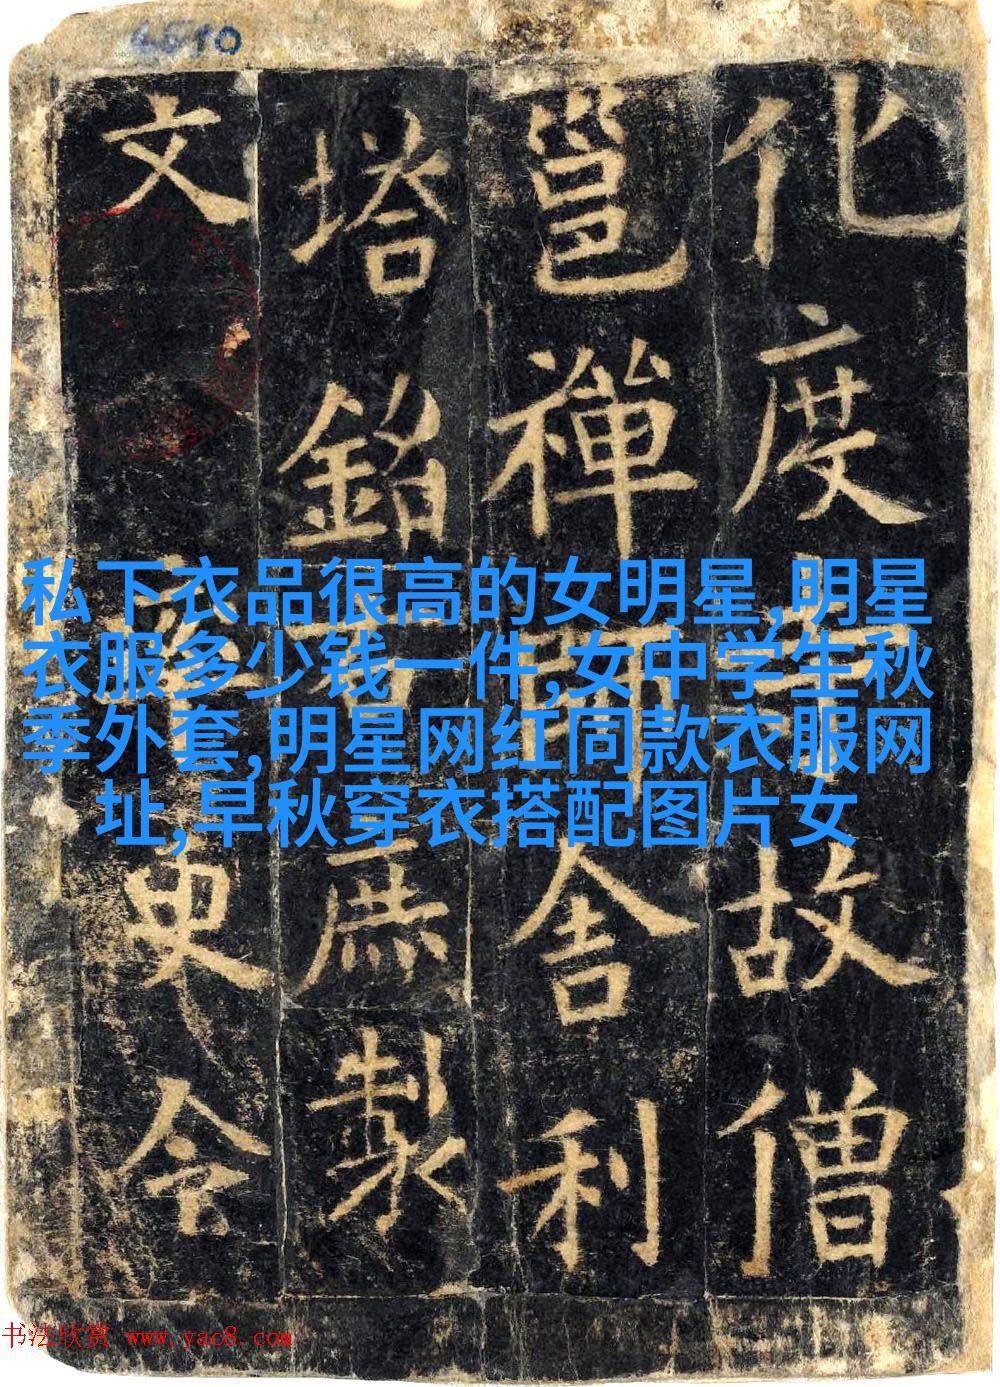 化度寺故僧
邕禪師舍利
塔銘右庶製
文率更令
私下衣品很高的女明星,明星
衣服多少钱一件,女中学生秋
季外套,明星网红同款衣服网
址,早秋穿衣搭配图片女
书法欣赏 www.yac8.com